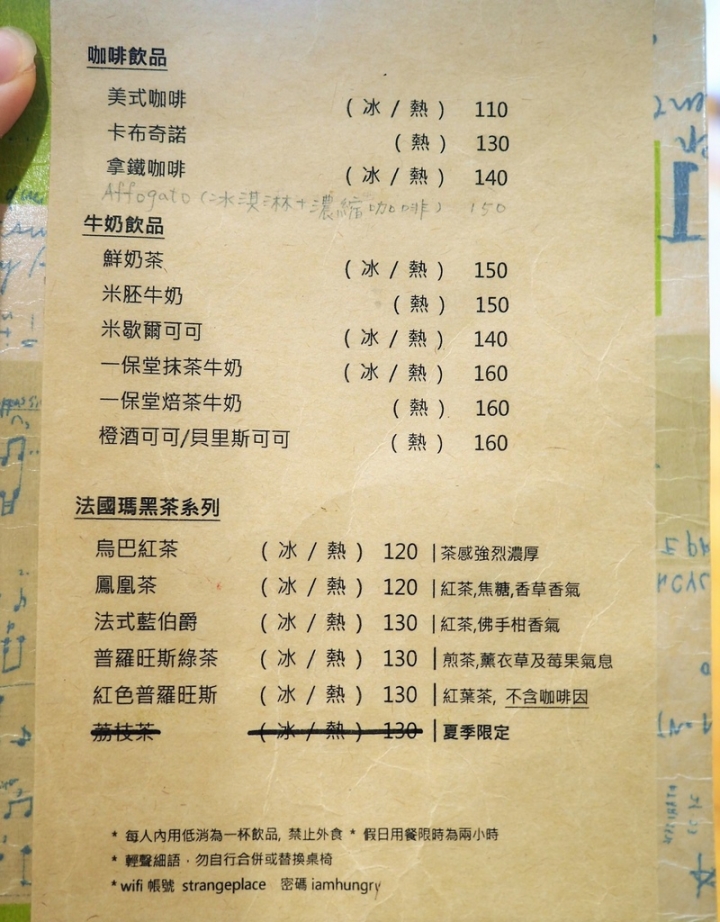 咖啡飲品
美式咖啡 ( 冰 / 熱 ) 110
卡布奇諾 ( 熱 ) 130
拿鐵咖啡 ( 冰 / 熱 ) 140
Affogato (冰淇淋+濃縮咖啡) 150
牛奶飲品
鮮奶茶 ( 冰 / 熱 ) 150
米胚牛奶 ( 熱 ) 150
米歇爾可可 ( 冰 / 熱 ) 140
一保堂抹茶牛奶 ( 冰 / 熱 ) 160
一保堂焙茶牛奶 ( 熱 ) 160
橙酒可可/貝里斯可可 ( 熱 ) 160
法國瑪黑茶系列
烏巴紅茶 ( 冰 / 熱 ) 120 |茶感強烈濃厚
鳳凰茶 ( 冰 / 熱 ) 120 |紅茶,焦糖,香草香氣
法式藍伯爵 ( 冰 / 熱 ) 130 |紅茶,佛手柑香氣
普羅旺斯綠茶 ( 冰 / 熱 ) 130 |煎茶,薰衣草及莓果氣息
紅色普羅旺斯 ( 冰 / 熱 ) 130 |紅葉茶, 不含咖啡因
荔枝茶 ( 冰 / 熱 ) 130 |夏季限定
* 每人內用低消為一杯飲品, 禁止外食 * 假日用餐限時為兩小時
* 輕聲細語，勿自行合併或替換桌椅
* wifi 帳號 strangeplace 密碼 iamhungry